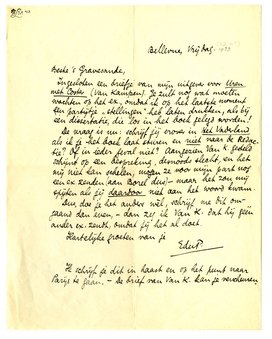 Bellevue, Vrijdag.
Beste 's Gravesande,
Ingesloten een briefje van mijn uitgever voor Uren
met Coster (Van Kampen). Je zult nog wat moeten
wachten op het ex., omdat ik op het laatste moment
een partijtje „stellingen" heb laten drukken, als bij
een dissertatie, die los in het boek gelegd worden!
De vraag is nu: schrijf jij erover in Het Vaderland
als ik je het boek laat sturen en niet naar de Redac-
tie? Of in ieder geval niet? Aangezien Van K. gesteld
schijnt op een bespreking, desnoods slecht, en het
mij niet kan schelen, mogen ze voor mijn part nog
een ex. zenden aan Borel
maar het zou mij
spijten als jij daardoor niet aan het woord kwam.
Dus, doe je het anders wèl, schrijf me dit om-
gaand dan even, – dan zeg ik Van K. dat hij geen
ander ex. zendt, omdat jij het al doet.
Hartelijke groeten van je
EduP.
Ik schrijf je dit in haast en op het punt naar
Parijs te gaan. – De brief van Van K. kan je verscheuren.